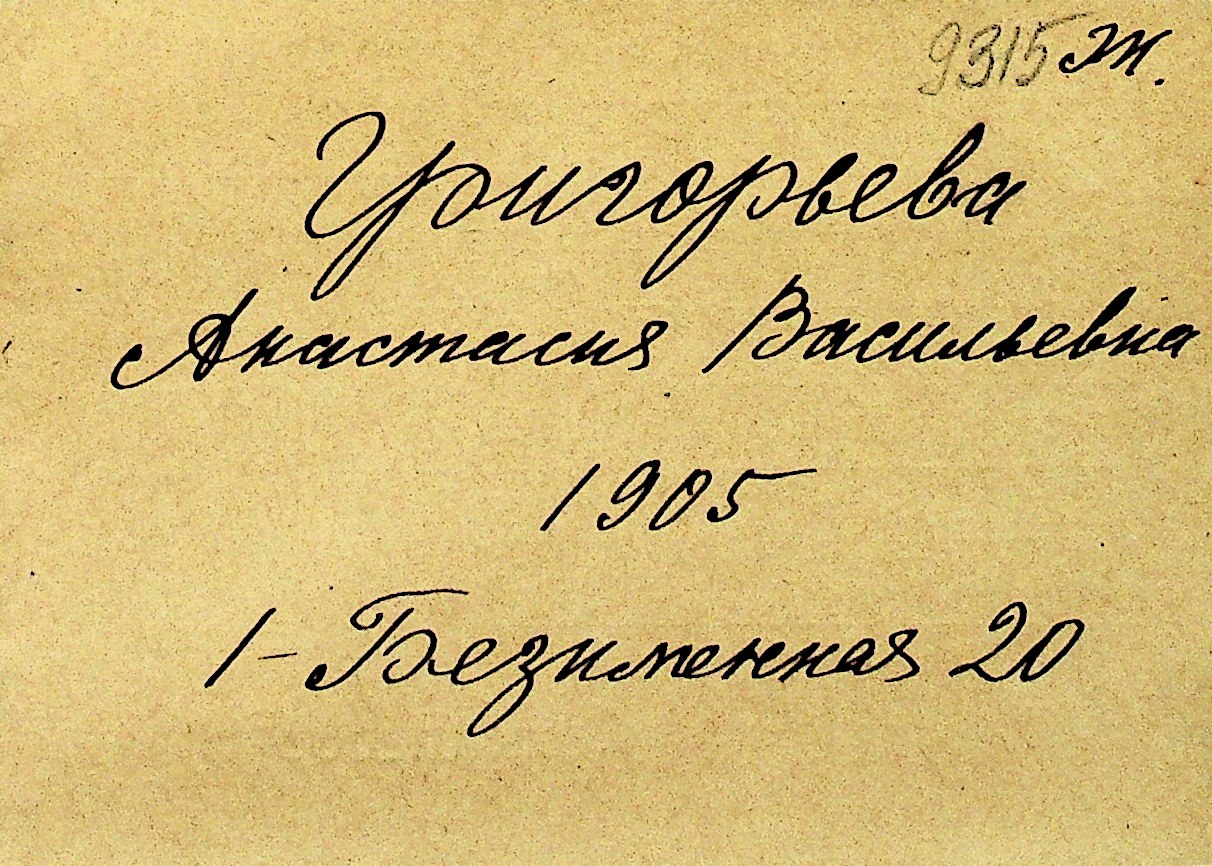 9315 ж.
Григорьева
Анастасия Васильевна
1905
1-Безименная 20